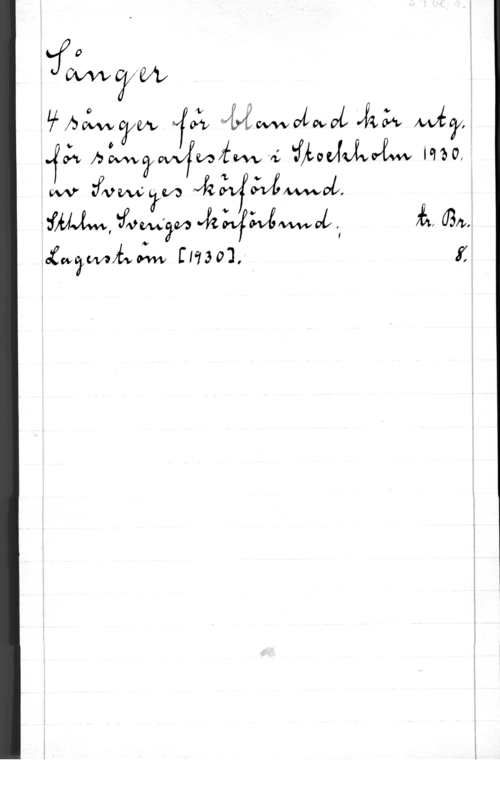 Sånger
4 sånger för blandad kör utg.
för sångarfesten i Stockholm 1930.
av Sveriges körförbund.
Sthlm, Sveriges körförbund; tr. Br.
Lagerström [1930]. 8.